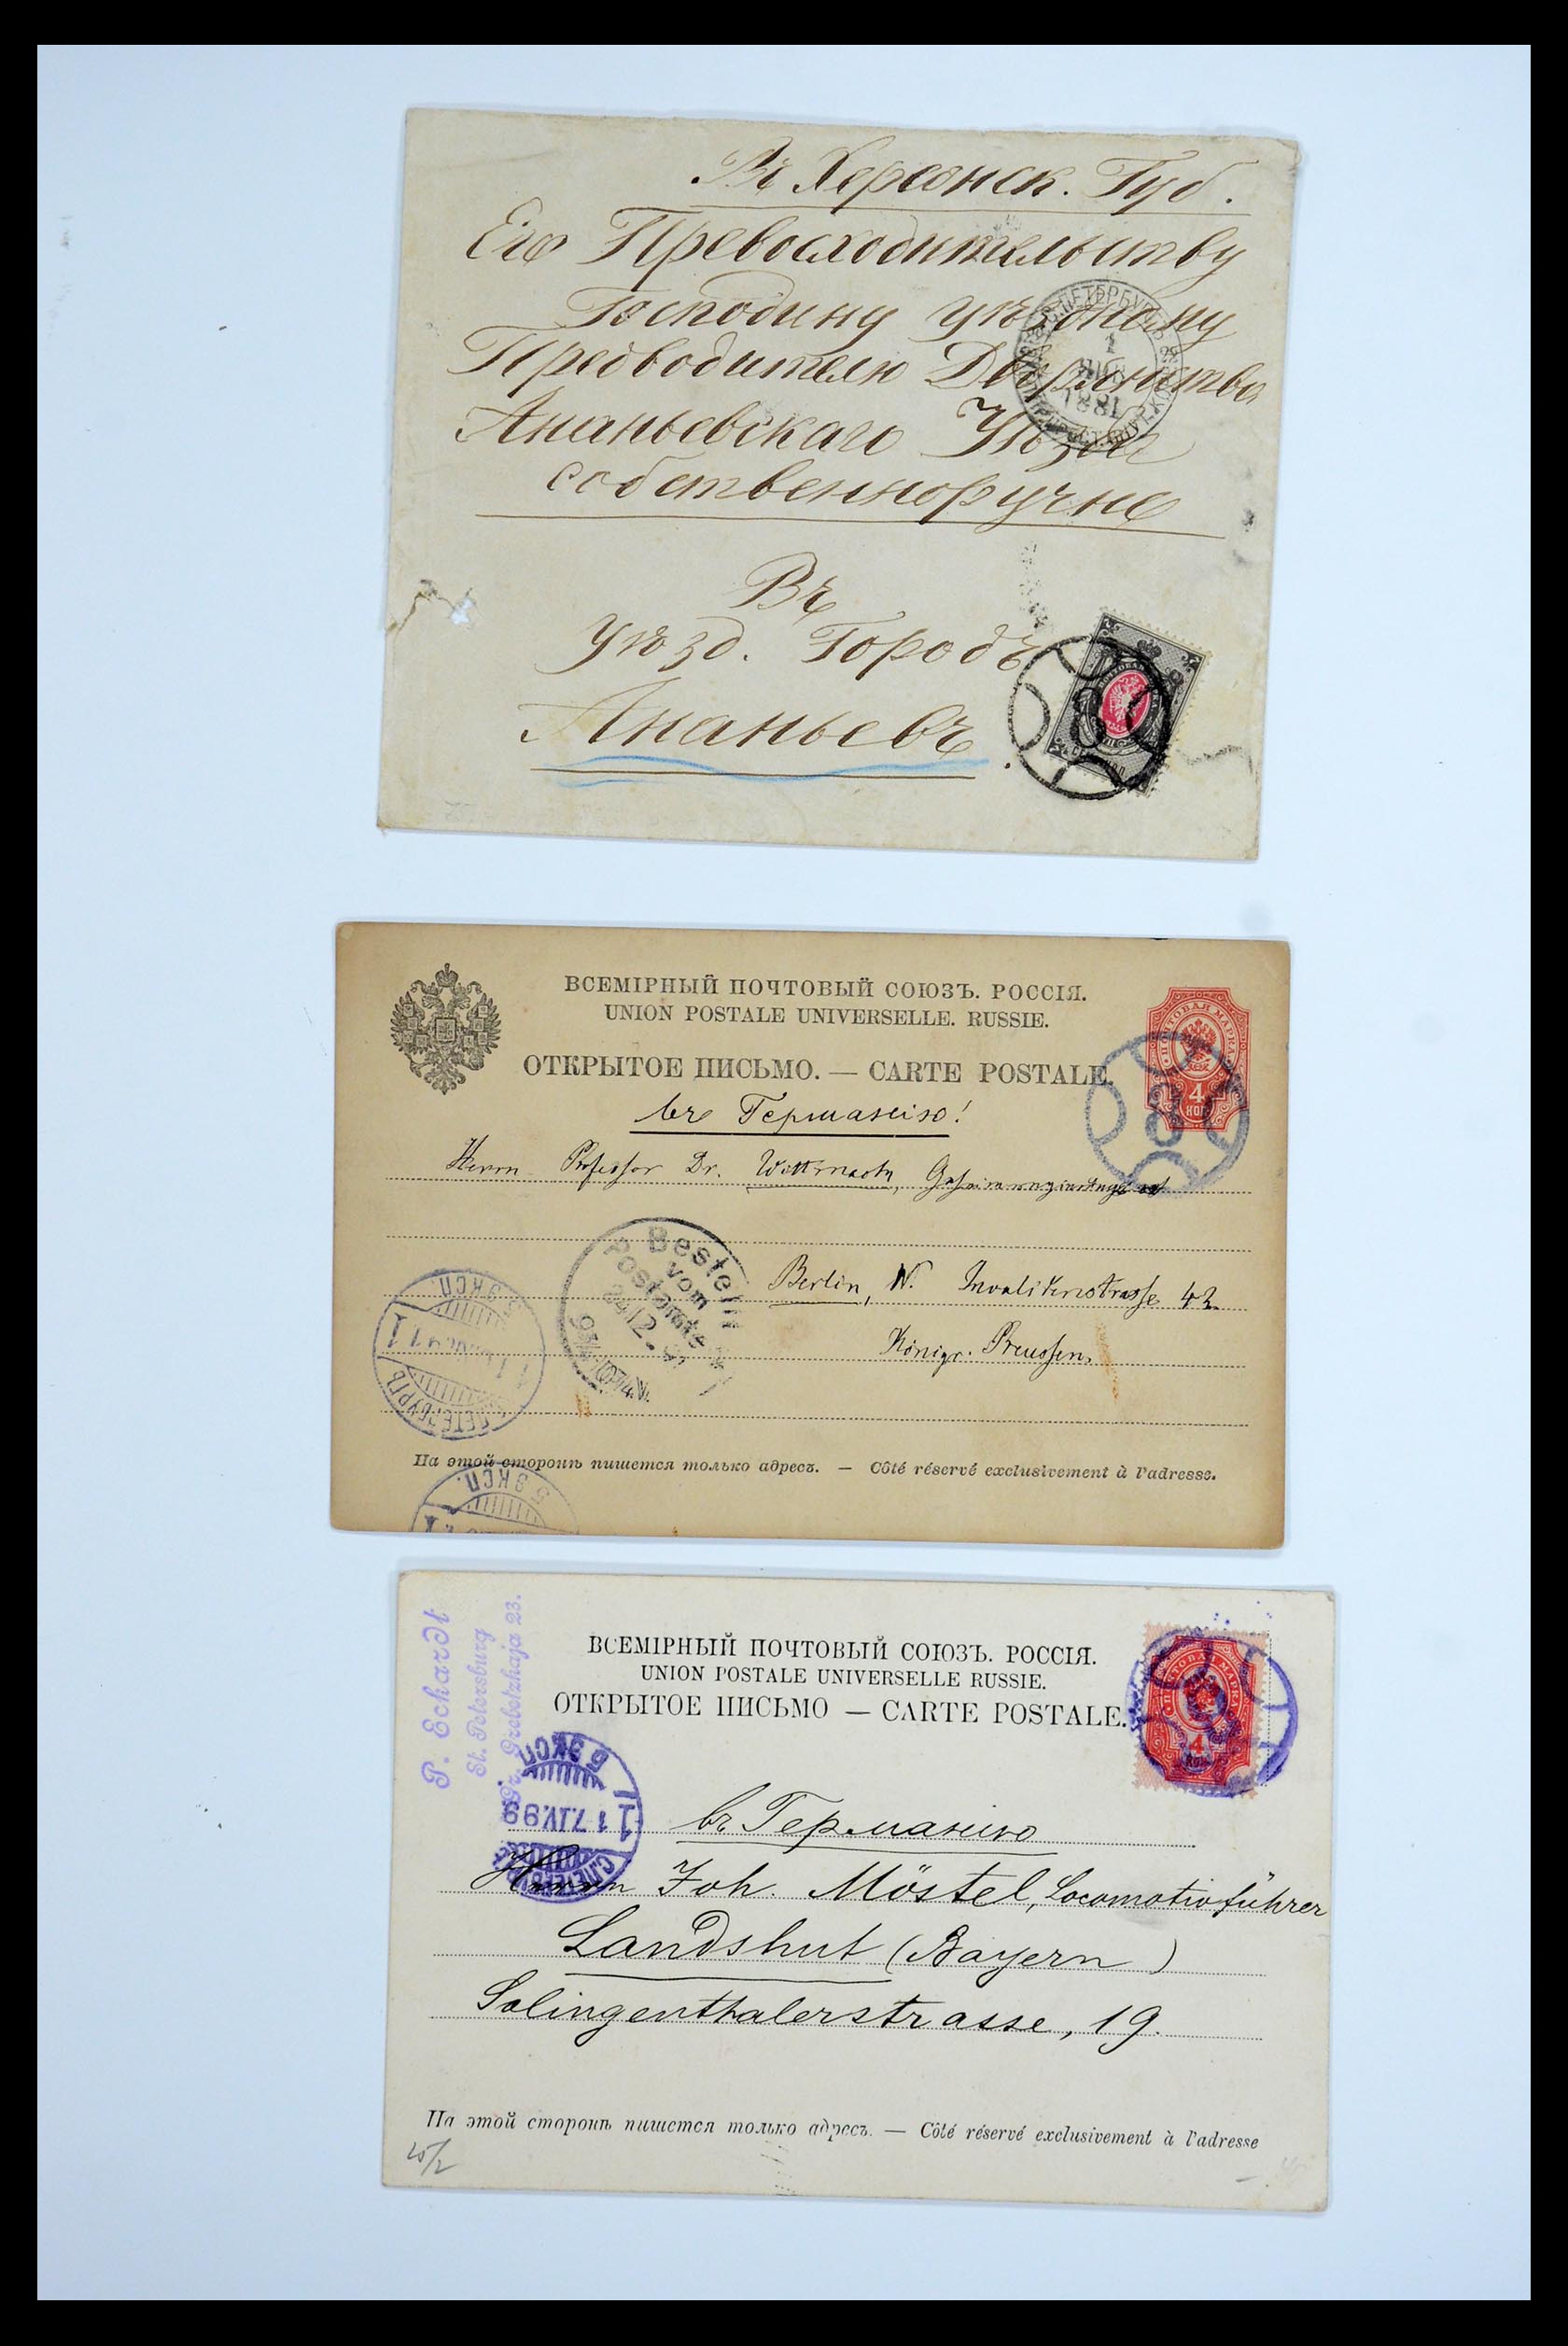 Въ Херсонск. Губ.
Его Превосходительству
Господину Уѣздному
Предводителю Дворянства
Ананьевскаго Уѣзда
собственноручно
Въ
уѣзд. Городъ
Ананьевъ.
1
1881
8
ВСЕМІРНЫЙ ПОЧТОВЫЙ СОЮЗЪ. РОССІЯ.
UNION POSTALE UNIVERSELLE. RUSSIE.
ОТКРЫТОЕ ПИСЬМО. — CARTE POSTALE.
ПОЧТОВАЯ МАРКА
4
КОП
въ Германію!
Herrn Professor Dr. Wittmack,
Berlin, N. Invalidenstrasse 42
Königr. Preussen.
Bestellt
vom
Postamte
5 ЭКСП.
1
На этой сторонѣ пишется только адресъ. — Côté réservé exclusivement à l'adresse.
5 ЭКСП.
P. Eckardt
St. Petersburg
Gr. Grebetzkaja 23.
ВСЕМІРНЫЙ ПОЧТОВЫЙ СОЮЗЪ. РОССІЯ.
UNION POSTALE UNIVERSELLE RUSSIE.
ОТКРЫТОЕ ПИСЬМО — CARTE POSTALE.
ПОЧТОВАЯ МАРКА
4
КОП
С.ПЕТЕРБУРГЪ
1 17.IV.99
ЭКСП
въ Германію
Herrn Joh. Möstel, Locomotivführer
Landshut (Bayern)
Solingenthalerstrasse, 19.
На этой сторонѣ пишется только адресъ. — Côté réservé exclusivement à l'adresse